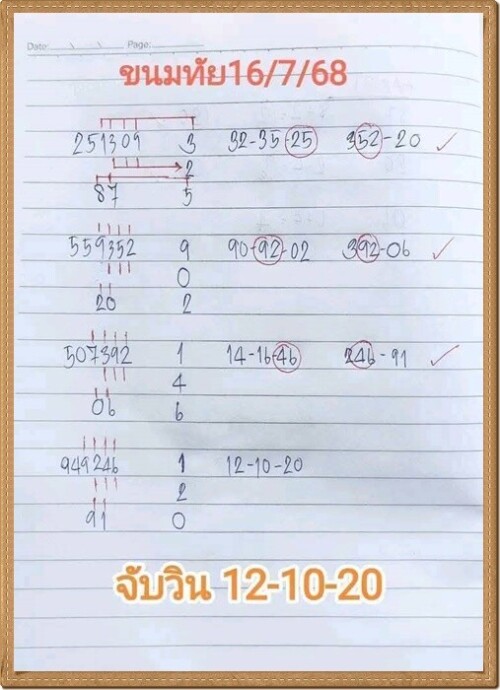 Date: Page:
ขนมทัย16/7/68
251309 3 32-35-25 352-20
2
87 5
559352 9 90-92-02 392-06
0
20 2
507392 1 14-16-46 246-91
4
06 6
949246 1 12-10-20
2
91 0
จับวิน 12-10-20